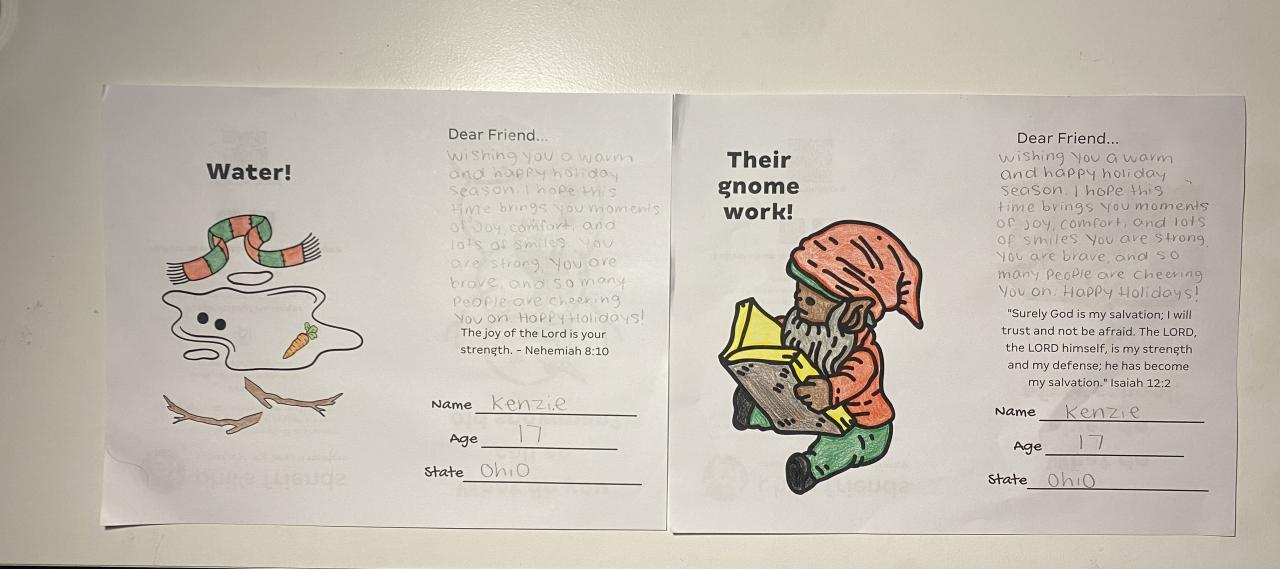 Water!
Dear Friend...
wishing you a warm
and happy holiday
season. I hope this
time brings you moments
of joy, comfort, and
lots of smiles. You
are strong, you are
brave, and so many
people are cheering
you on. Happy Holidays!
The joy of the Lord is your
strength. - Nehemiah 8:10
Name Kenzie
Age 17
State Ohio
Their
gnome
work!
Dear Friend...
wishing you a warm
and happy holiday
season. I hope this
time brings you moments
of joy, comfort, and lots
of smiles You are strong,
you are brave, and so
many people are cheering
you on. Happy Holidays!
"Surely God is my salvation; I will
trust and not be afraid. The LORD,
the LORD himself, is my strength
and my defense; he has become
my salvation." Isaiah 12:2
Name Kenzie
Age 17
State Ohio